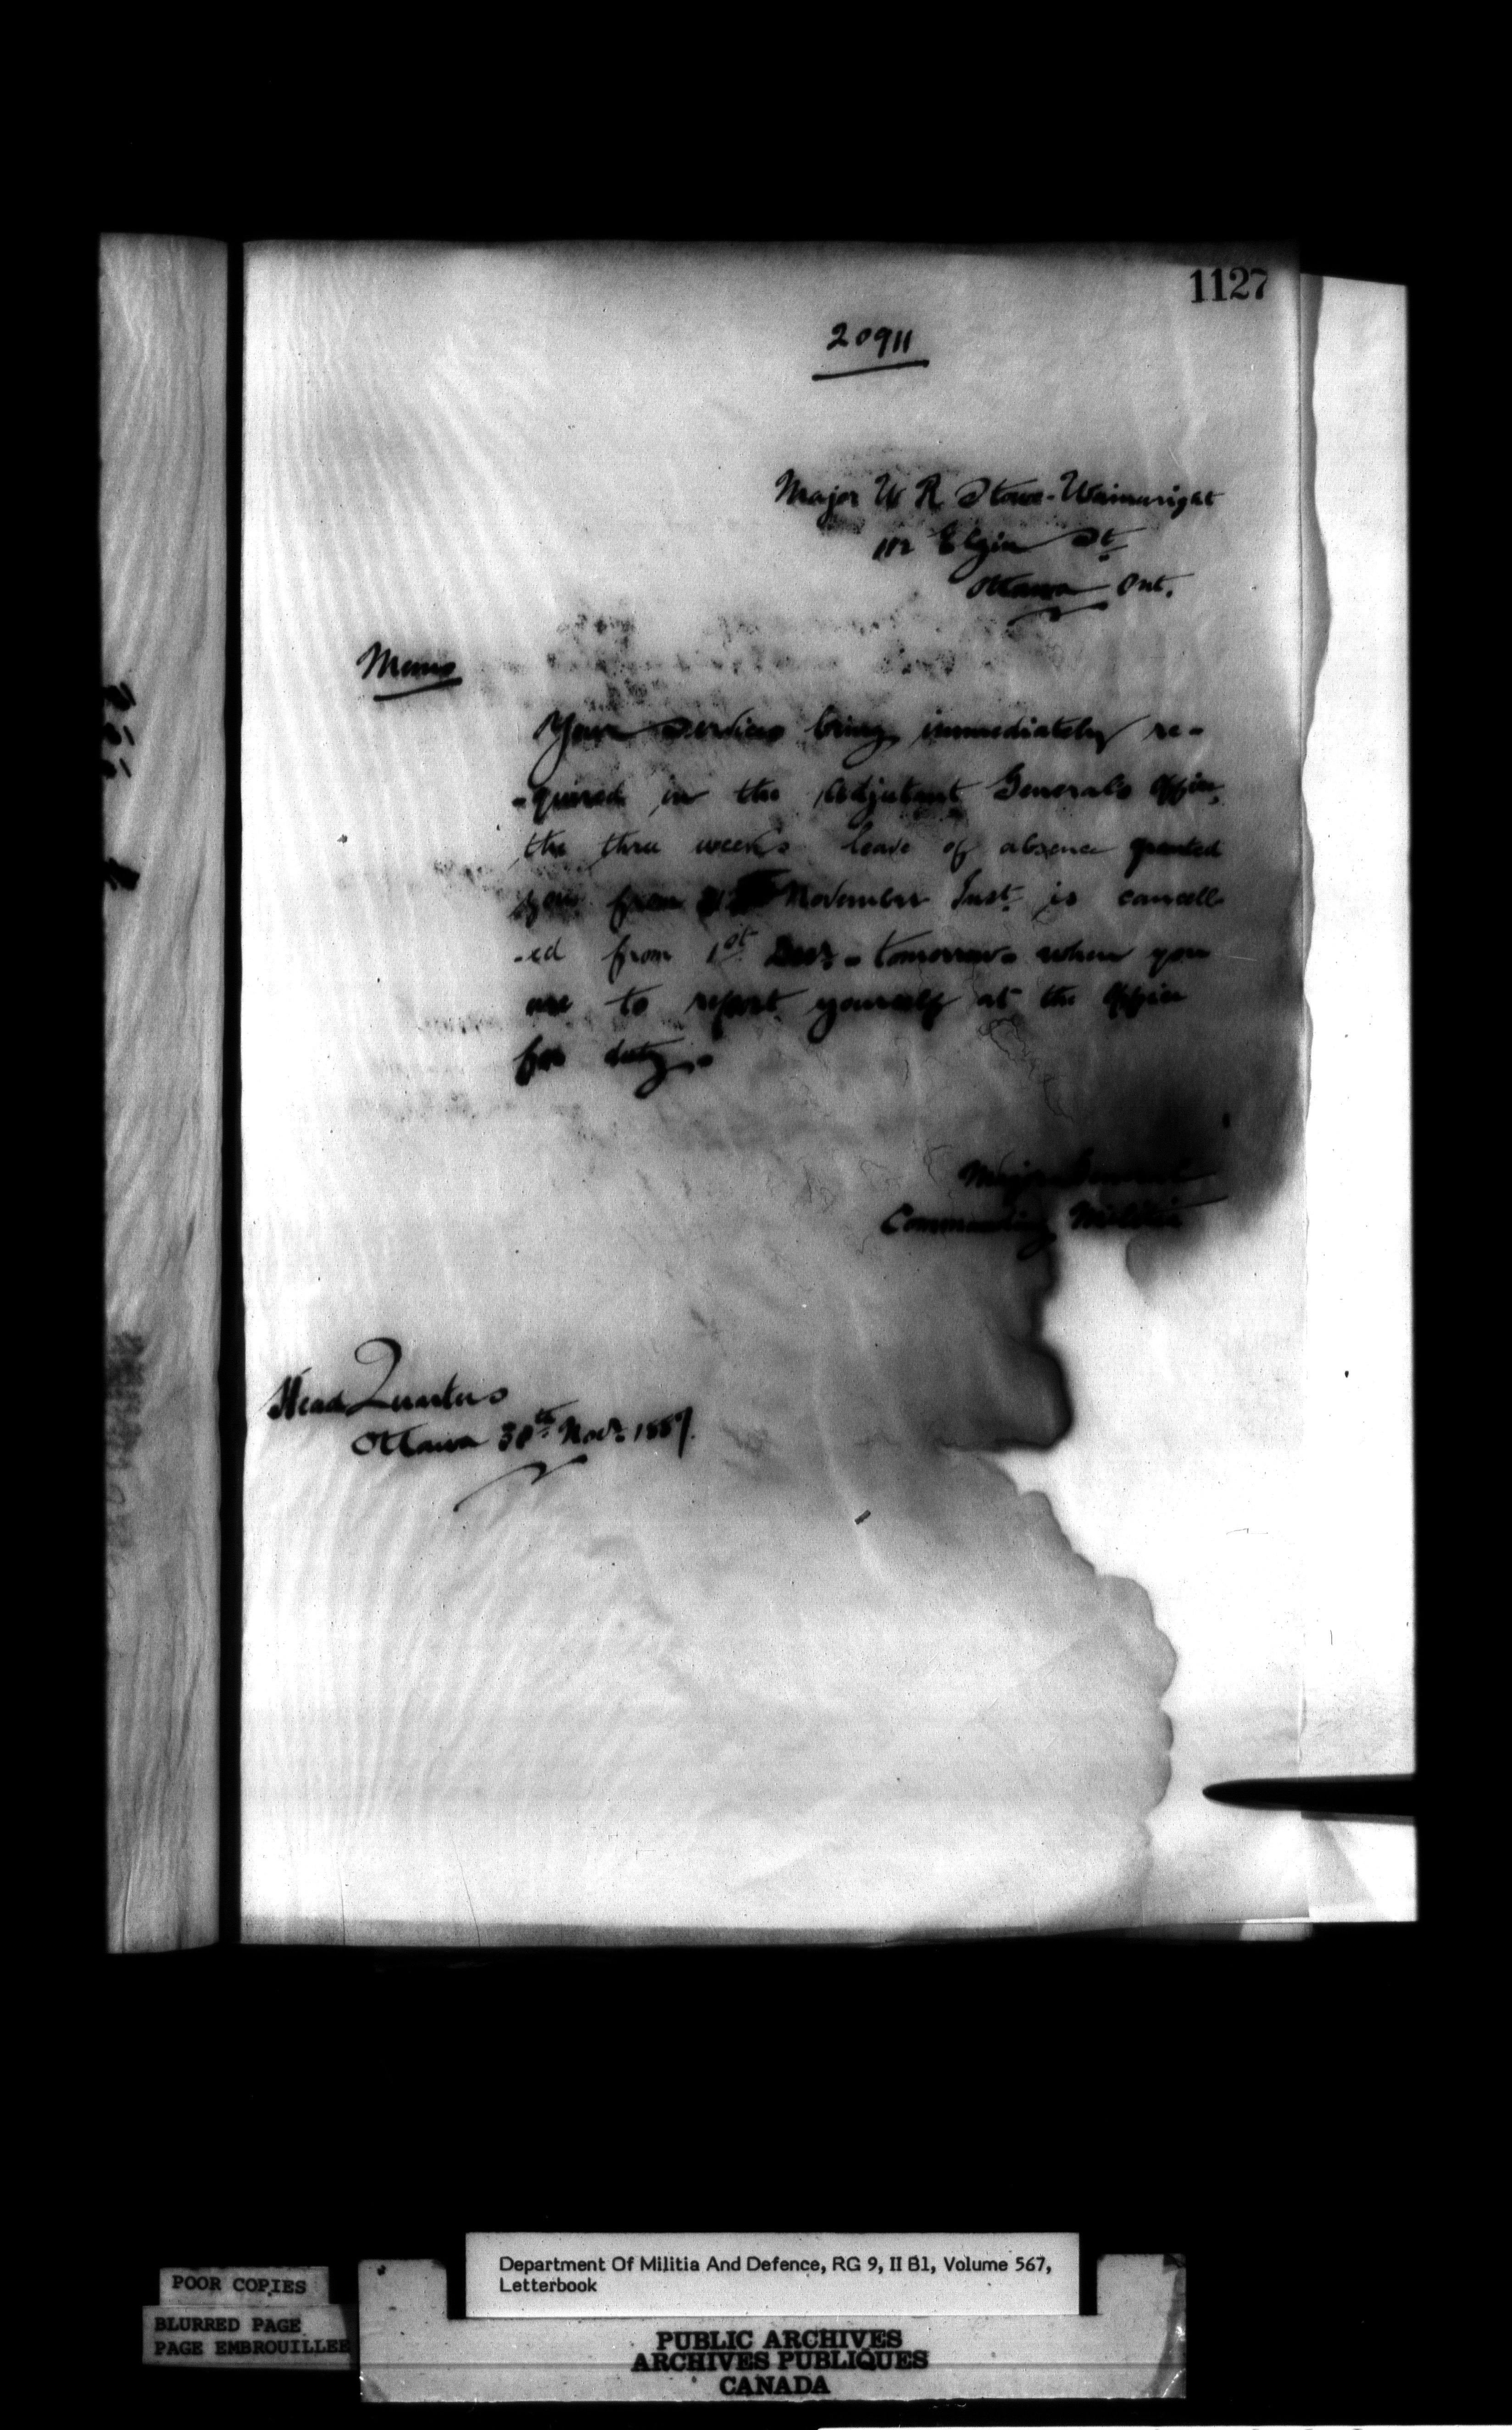 1127
20911
Major W R Stone-Wainwright
112 Elgin St
Ottawa Ont.
Memo
Your services being immediately re-
-quired in the Adjutant Generals Office,
the three weeks leave of absence granted
you from November Inst. is cancell
-ed from 1st Decr. - tomorrow - when you
are to report yourself at the Office
for duty. -
Major General
Commanding Militia
Head Quarters
Ottawa 30th Novr. 1887.
Department Of Militia And Defence, RG 9, II B1, Volume 567,
Letterbook
POOR COPIES
BLURRED PAGE
PAGE EMBROUILLEE
PUBLIC ARCHIVES
ARCHIVES PUBLIQUES
CANADA